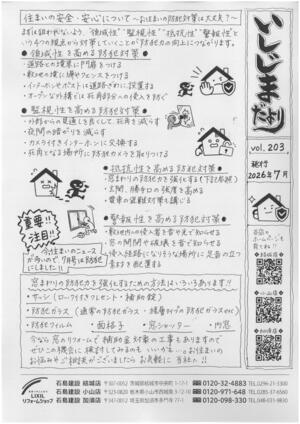 住まいの安全・安心について～お住まいの防犯対策は大丈夫？～
まずは狙われないよう、"領域性" "監視性" "抵抗性" "警報性" と
いう4つの視点から対策していくことが防犯力の向上につながります。
● 領域性を高める防犯対策 ●
・道路との境界に門扉をつける
・敷地の境に柵やフェンスをつける
・インターホンやポストは道路ぎわに設置する
・オープンな外構では
● 監視性を高める防犯対策 ●
・外部からの見通しを良くして、死角を減らす
・夜間の暗がりを減らす
・カメラ付きインターホンに交換する
・死角となる場所に防犯カメラを取りつける
● 抵抗性を高める防犯対策 ●
・窓まわりの防犯力を強化する
・玄関、勝手口の強度を高める
・電車の盗難対策も講じる
● 警報性を高める防犯対策 ●
・敷地内への侵入者を音や光で知らせる
・窓の開閉や破壊を音で知らせる
・侵入経路になりそうな場所に足音の立つ
素材を敷設する
重要!!
注目!!
今住まいのニュース
が多いので7月号は防犯
にしました!!
窓まわりの防犯力を強化するための方法はいろいろあります!!
・サッシ（ローラ付きクレセント・補助錠）
・防犯ガラス（通常の防犯ガラス・
・防犯フィルム ・面格子 ・窓シャッター ・内窓
今なら窓のリフォームで補助金対象の工事もありますので
ぜひこの機会に検討してみるのもいいかも…。お住まいの
お悩みやご相談がございましたらお気軽に当社へ!!
いしじまだより
vol. 203
発行
2026年7月
各店の
ホームページも
見てね！
結城店
小山店
加須店
LIXIL
リフォームショップ
石島建設 結城店 〒307-0052 茨城県結城市中央町 1-7-1 0120-32-4883 TEL.0296-21-3300
石島建設 小山店 0120-971-648 TEL.0285-31-3560
石島建設 加須店 0120-098-330 TEL.048-031-9830